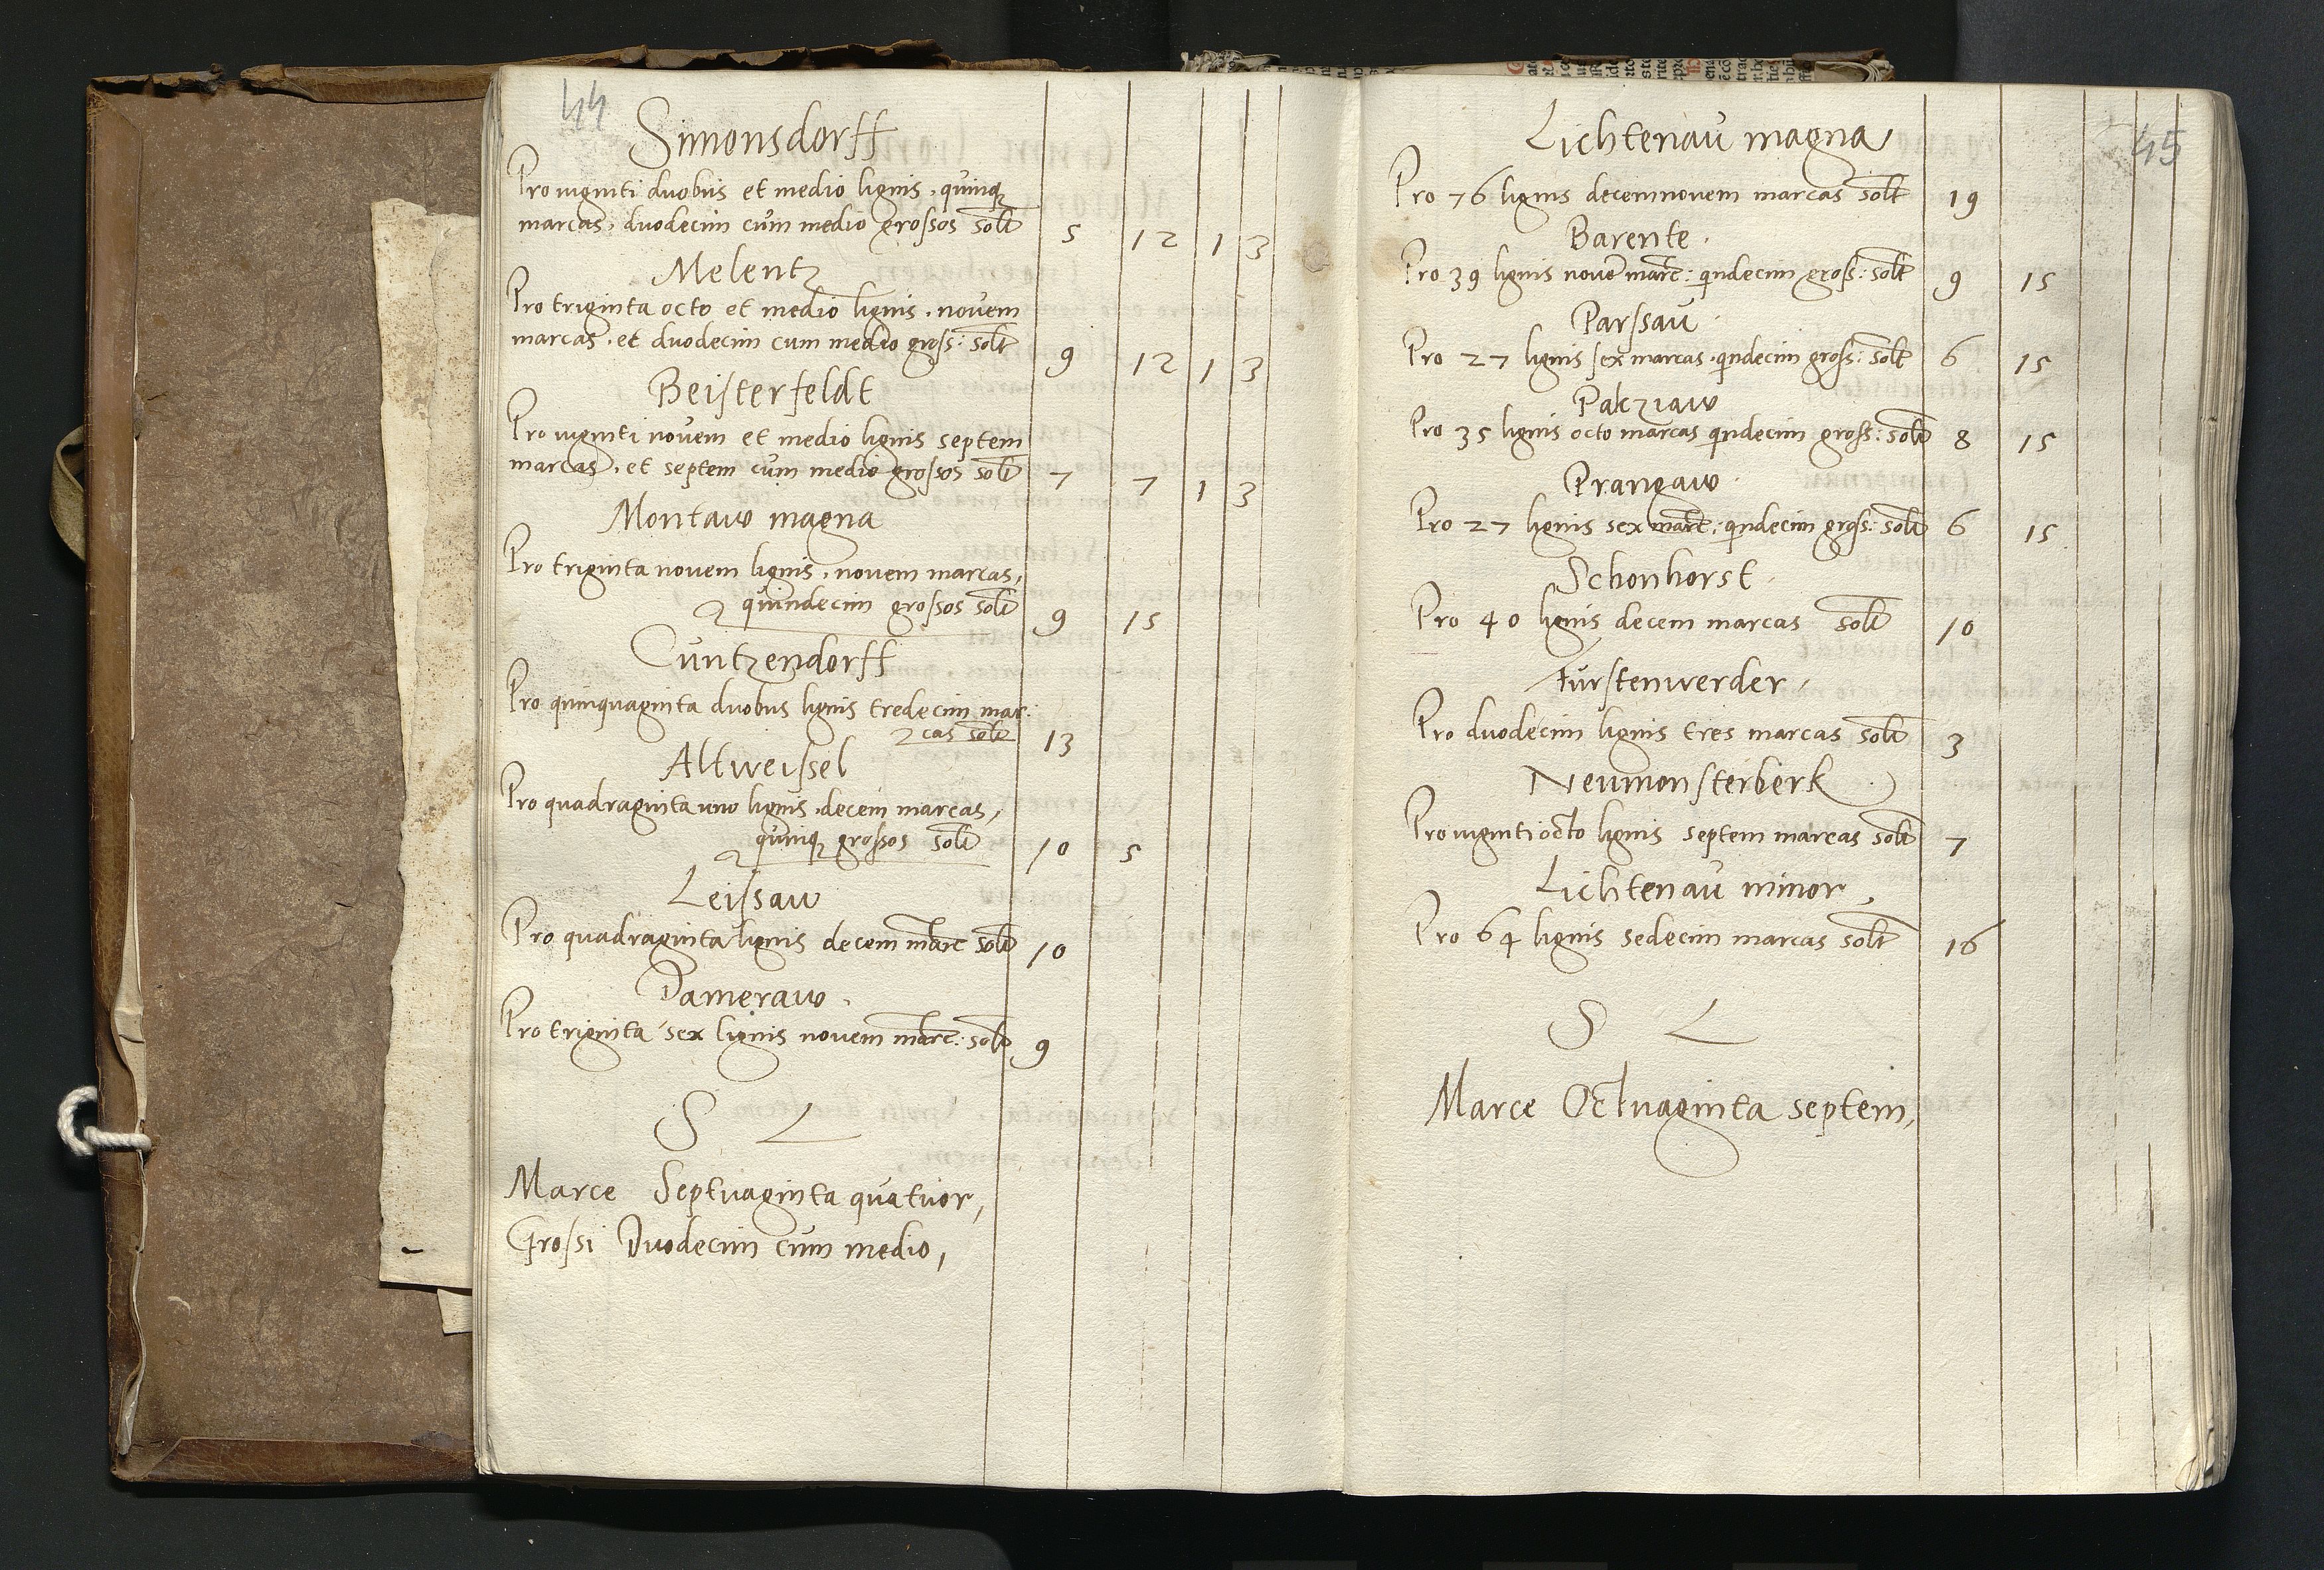 44
Simonsdorff
Pro viginti duobus et medio lignis, quinq
marcas, duodecim cum medio grossos solt 5 12 1 3
Melentz
Pro triginta octo et medio lignis, novem
marcas, et duodecim cum medio gross: solt 9 12 1 3
Beisterfeldt
Pro viginti novem et medio lignis septem
marcas, et septem cum medio grossos solt 7 7 1 3
Montaw magna
Pro triginta novem lignis, novem marcas,
quindecim grossos solt 9 15
Cuntzendorff
Pro quinquaginta duobus lignis tredecim mar:
cas solt 13
Altweissel
Pro quadraginta uno lignis, decem marcas,
quinq grossos solt 10 5
Leissaw
Pro quadraginta lignis decem marc solt 10
Dameraw.
Pro triginta sex lignis novem marc: solt 9
S L
Marce Septuaginta quatuor,
Grossi Duodecim cum medio,
45
Lichtenau magna
Pro 76 lignis decemnovem marcas solt 19
Barente.
Pro 39 lignis novē marc: qndecim gross: solt 9 15
Parssau.
Pro 27 lignis sex marcas, qndecim gross: solt 6 15
Palcziaw
Pro 35 lignis octo marcas qndecim gross: solt 8 15
Prangaw.
Pro 27 lignis sex marc: qndecim gross: solt 6 15
Schonhorst.
Pro 40 lignis decem marcas solt 10
Furstenwerder.
Pro duodecim lignis tres marcas solt 3
Neumonsterberk.
Pro viginti octo lignis septem marcas solt 7
Lichtenau minor,
Pro 64 lignis sedecim marcas solt 16
S L
Marce Octuaginta septem,